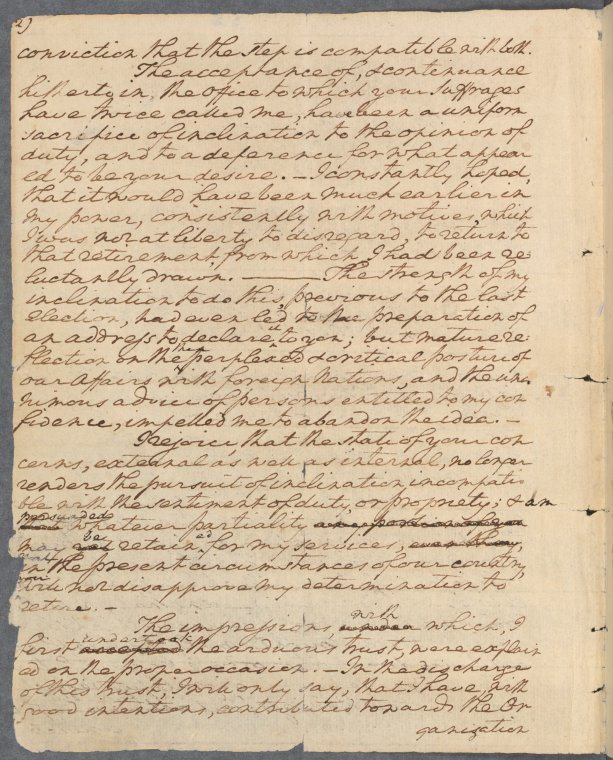 2)
conviction that the step is compatible with both.
The acceptance of, & continuance
hitherto in, the office to which your suffrages
have twice called me, have been a uniform
sacrifice of inclination to the opinion of
duty, and to a deference for what appear
ed to be your desire. – I constantly hoped,
that it would have been much earlier in
my power, consistently with motives, which
I was not at liberty to disregard, to return to
that retirement, from which I had been re
luctantly drawn. – The strength of my
inclination to do this, previous to the last
election, had even led to the preparation of
an address to declare it to you; but mature re
flection on the then perplexed & critical posture of
our Affairs with foreign Nations, and the una
nimous advice of persons entitled to my con
fidence, impelled me to abandon the idea. –
I rejoice that the state of your con
cerns, external as well as internal, no longer
renders the pursuit of inclination incompati
ble with the sentiment of duty, or propriety; & am
persuaded
whatever partiality any portion of you
be ed
may yet retain for my services, even they,
in the present circumstances of our country,
will not disapprove my determination to
retire. –
with
The impressions, under which, I
undertook
first accepted the arduous trust, were explain
ed on the proper occasion. – In the discharge
of this trust, I will only say, that I have, with
good intentions, contributed towards the Or
ganization